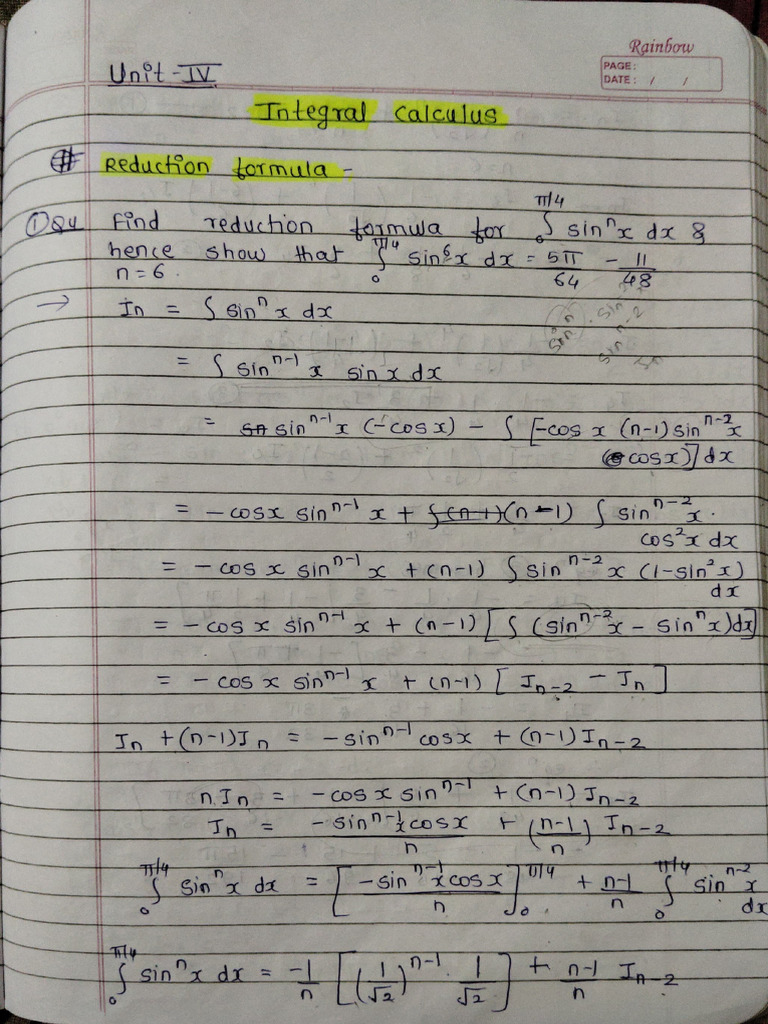 Rainbow
PAGE:
DATE: / /
Unit-IV
Integral Calculus
# Reduction formula-
① Q4 Find reduction formula for ∫₀^π/4 sinⁿx dx &
hence show that ∫₀^π/4 sin⁶x dx = 5π/64 - 11/48
n=6.
→ In = ∫ sinⁿ x dx
= ∫ sinⁿ⁻¹ x sin x dx
= sinⁿ⁻¹ x (-cos x) - ∫ [-cos x (n-1) sinⁿ⁻² x
(cos x)] dx
= -cos x sinⁿ⁻¹ x + (n-1) ∫ sinⁿ⁻² x.
cos²x dx
= -cos x sinⁿ⁻¹ x + (n-1) ∫ sinⁿ⁻² x (1-sin²x)
dx
= -cos x sinⁿ⁻¹ x + (n-1) [∫ (sinⁿ⁻² x - sinⁿ x) dx]
= -cos x sinⁿ⁻¹ x + (n-1) [In-2 - In]
In + (n-1) In = -sinⁿ⁻¹ cos x + (n-1) In-2
n In = -cos x sinⁿ⁻¹ + (n-1) In-2
In = -sinⁿ⁻¹ x cos x / n + (n-1 / n) In-2
∫₀^π/4 sinⁿ x dx = [-sinⁿ⁻¹ x cos x / n]₀^π/4 + n-1/n ∫₀^π/4 sinⁿ⁻² x
dx
∫₀^π/4 sinⁿ x dx = -1/n [(1/√2)ⁿ⁻¹ . 1/√2] + n-1/n In-2